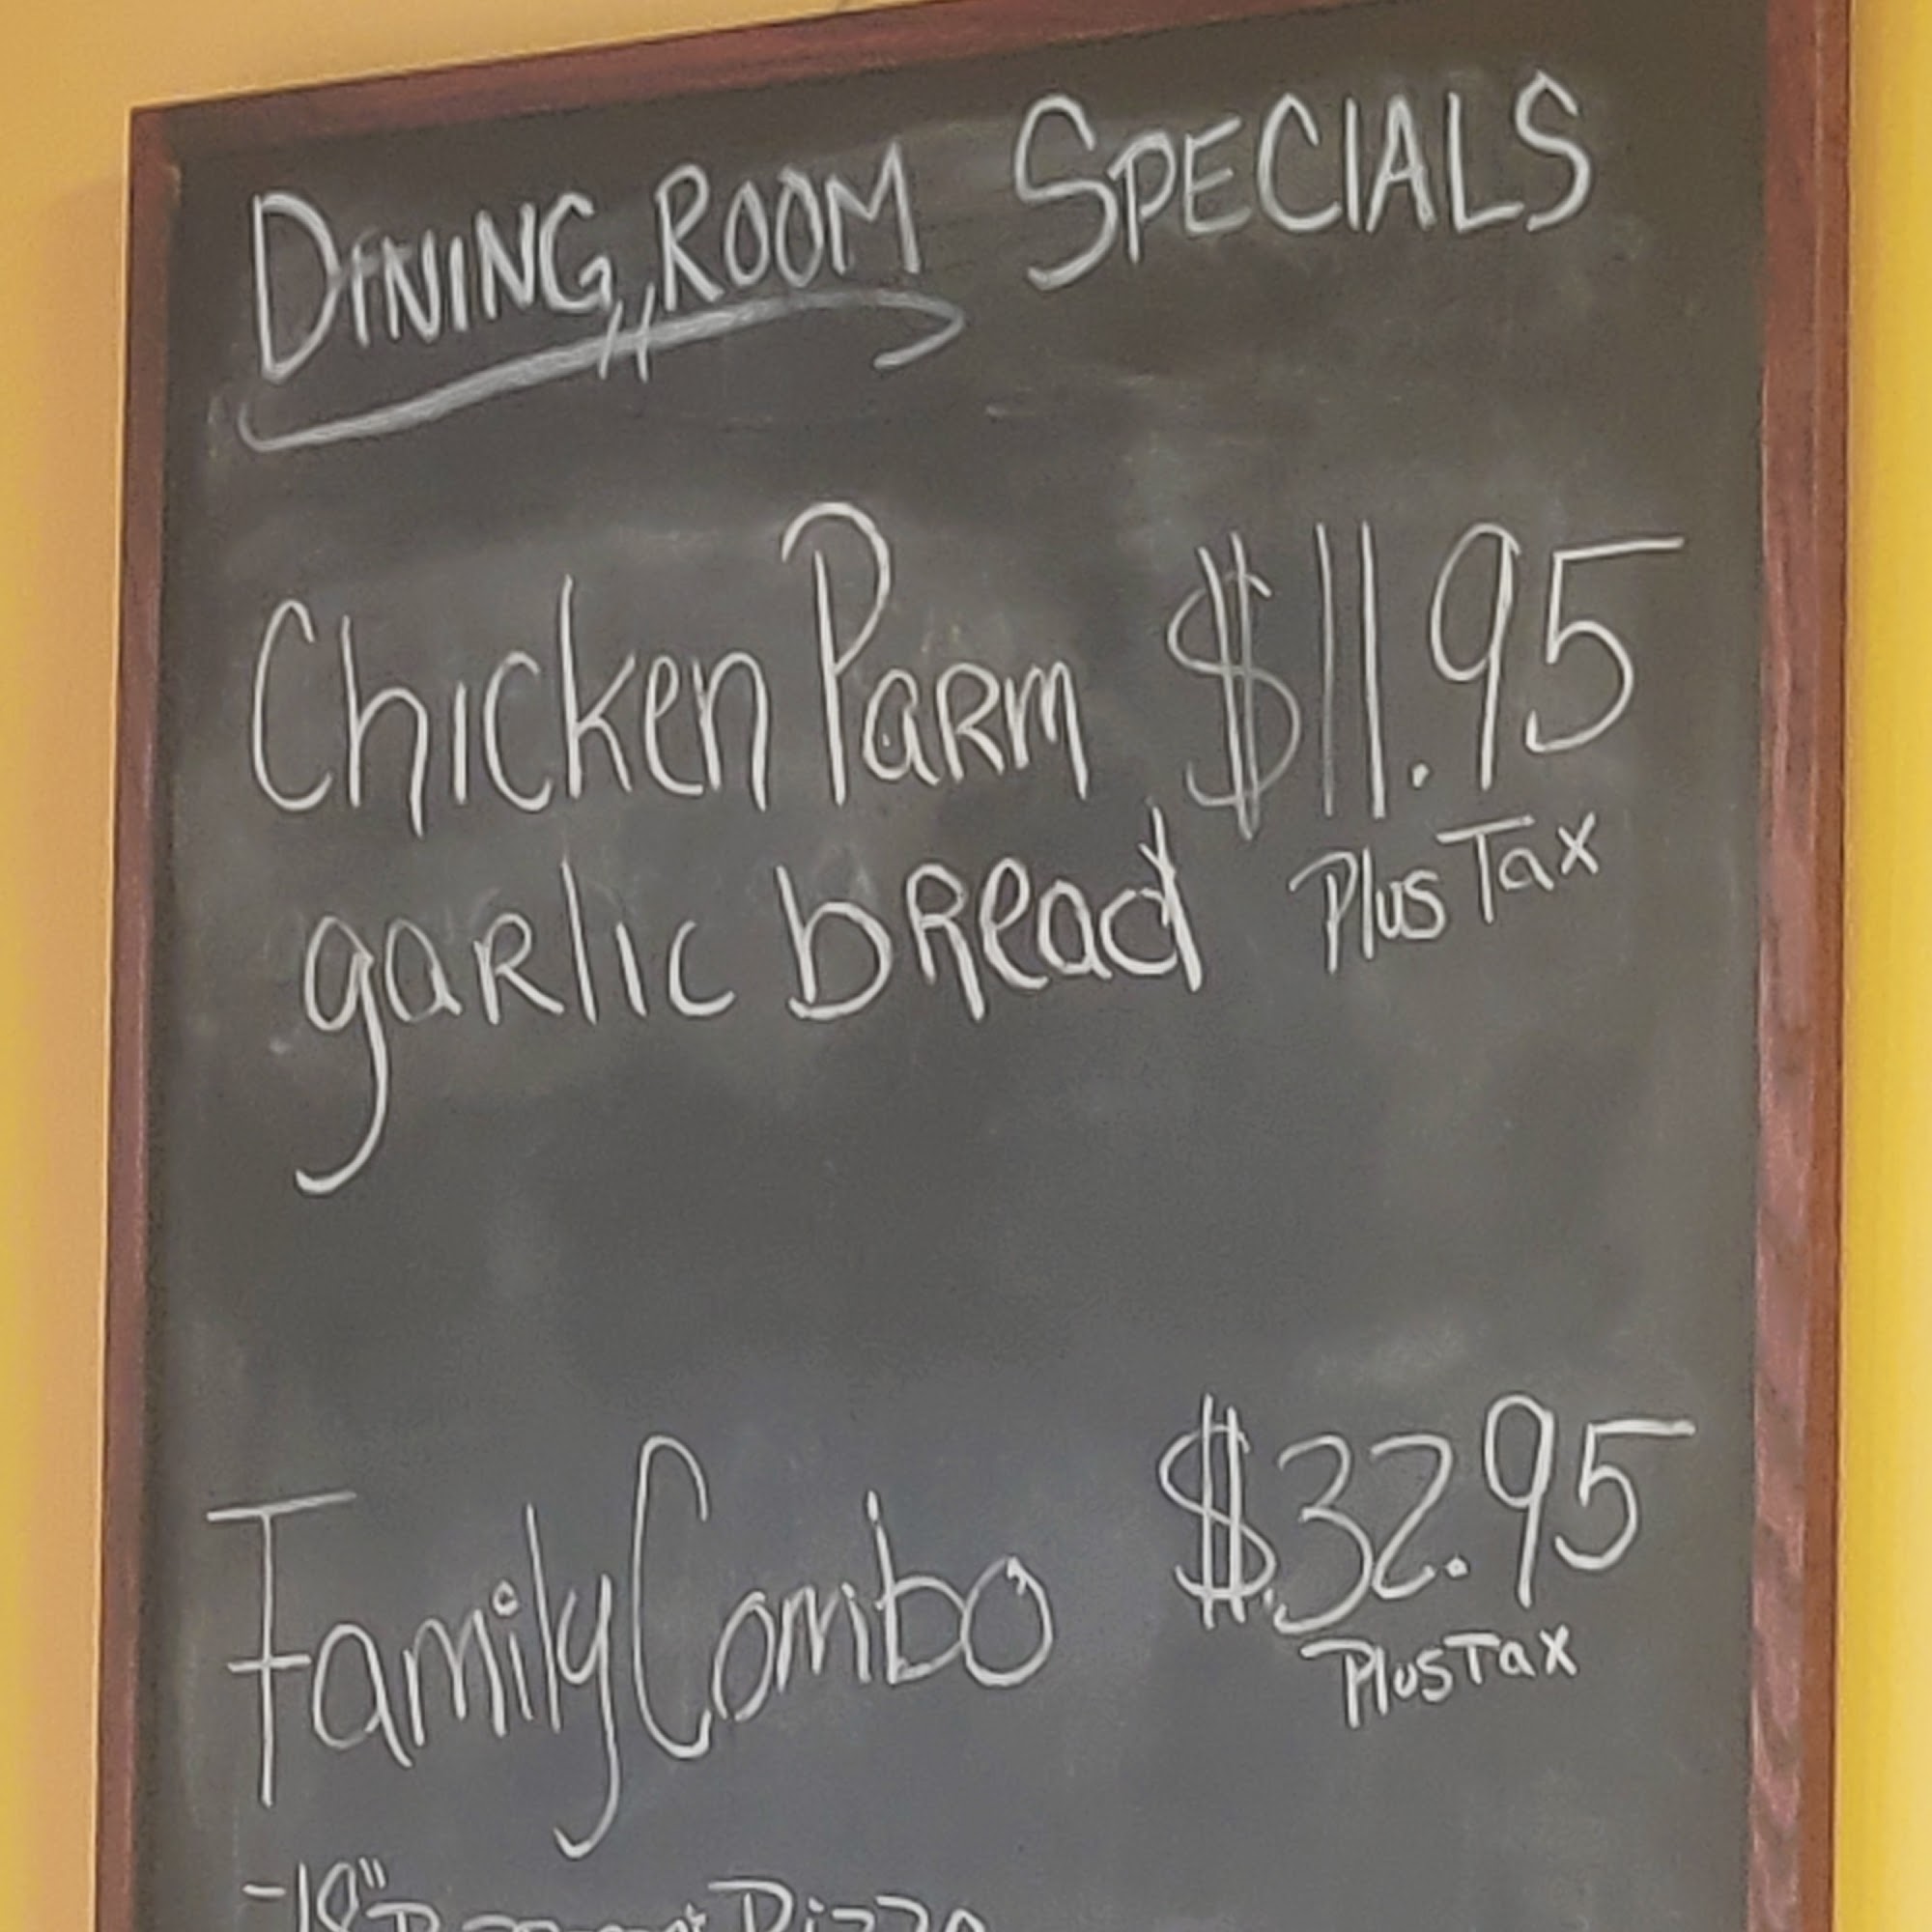 DINING ROOM SPECIALS
Chicken Parm $11.95
garlic bread Plus Tax
Family Combo $32.95
Plus Tax
-18" Pizza